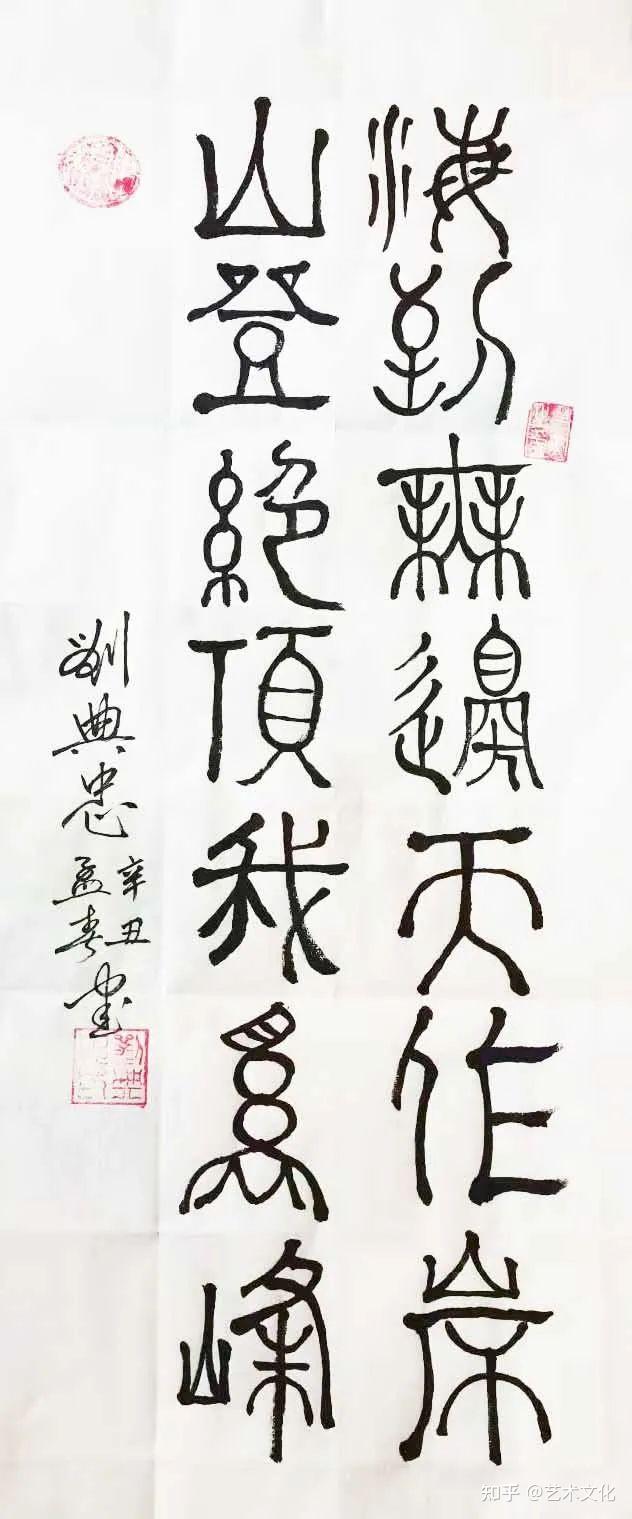 海到無邊天作岸
山登絕頂我爲峰
劉典忠
辛丑
孟春書
知乎 @艺术文化